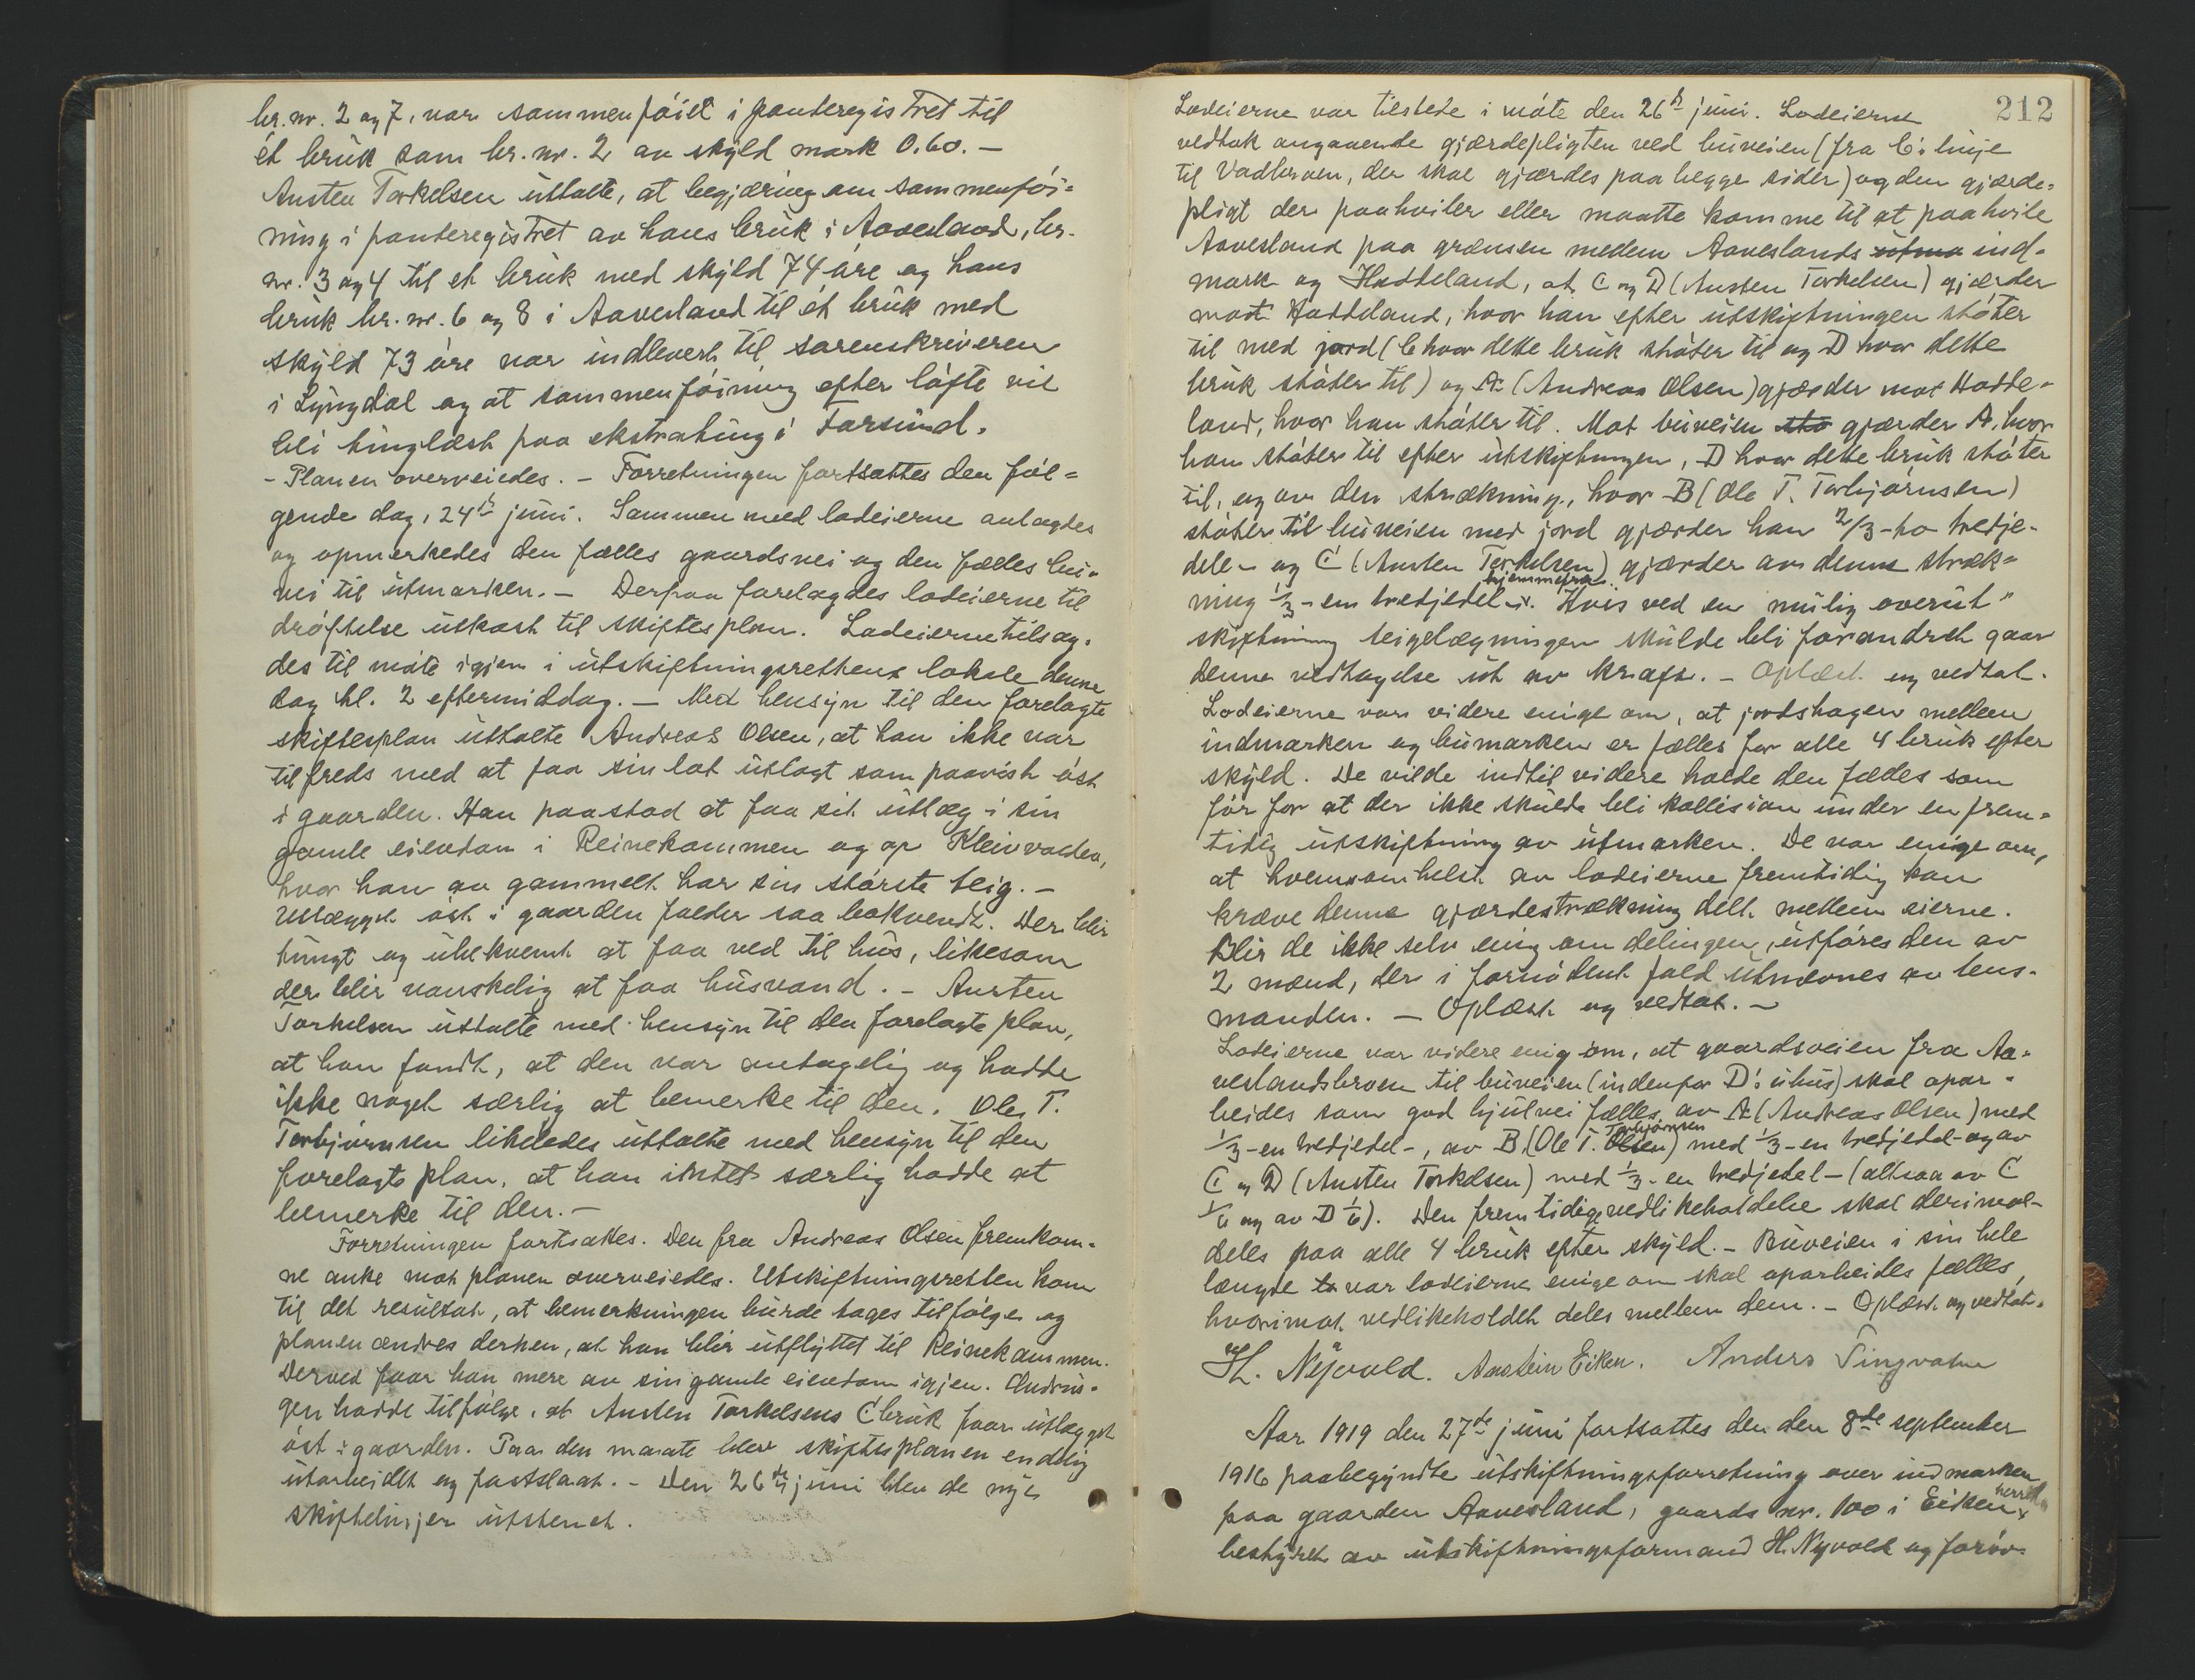 br. nr. 2 og 7, var sammenføiet i panteregistret til
ét bruk som br. nr. 2 av skyld mark 0.60. —
Austen Torkelsen uttalte, at begjæring om sammenføi=
ning i panteregistret av hans bruk i Aavesland, br.
nr. 3 og 4 til et bruk med skyld 74 øre og hans
bruk br. nr. 6 og 8 i Aavesland til ét bruk med
skyld 73 øre var indlevert til sorenskriveren
i Lyngdal og at sammenføining efter løfte vil
bli tinglæst paa ekstrating i Farsund.
- Planen overveiedes. - Forretningen fortsattes den føl=
gende dag, 24de juni. Sammen med lodeierne anlagdes
og opmerkedes den fælles gaardsvei og den fælles bu-
vei til utmarken. - Derpaa forelagdes lodeierne til
drøftelse utkast til skiftesplan. Lodeierne tilsag-
des til møte igjen i utskiftningsrettens lokale denne
dag kl. 2 eftermiddag. — Med hensyn til den forelagte
skiftesplan uttalte Andreas Olsen, at han ikke var
tilfreds med at faa sin lot utlagt som paavist øst
i gaarden. Han paastod at faa sit utlæg i sin
gamle eiendom i Reinekammen og op Kleivvoden,
hvor han av gammelt har sin største teig. -
Utlægget øst i gaarden falder saa bakvendt. Der blir
tungt og ubekvemt at faa ved til hus, likesom
der blir vanskelig at faa husvand. - Austen
Torkelsen uttalte med hensyn til den forelagte plan,
at han fandt, at den var antagelig og hadde
ikke noget særlig at bemerke til den. Ole T.
Torbjørnsen likeledes uttalte med hensyn til den
forelagte plan, at han intet særlig hadde at
bemerke til den. -
Forretningen fortsattes. Den fra Andreas Olsen fremkom-
ne anke mot planen overveiedes. Utskiftningsretten kom
til det resultat, at bemerkningen burde tages tilfølge og
planen ændres derhen, at han blir utflyttet til Reinekammen.
Derved faar han mere av sin gamle eiendom igjen. Ændrin-
gen hadde tilfølge, at Austen Torkelsens C bruk faar utlægget
øst i gaarden. Paa den maate blev skiftesplanen endelig
utarbeidet og fastslaat. - Den 26de juni blev de nye
skiftelinjer utstenet.
212
Lodeierne var tilstede i møte den 26de juni. Lodeierne
vedtok angaaende gjærdepligten ved buveien (fra C: linje
til Vadbroen, der skal gjærdes paa begge sider) og den gjærde-
pligt der paahviler eller maatte komme til at paahvile
Aavesland paa grænsen mellem Aaveslands utma ind-
mark og Haddeland, at C og D (Austen Torkelsen) gjærder
mot Haddeland, hvor han efter utskiftningen støter
til med jord (C hvor dette bruk støter til og D hvor dette
bruk støter til) og A (Andreas Olsen) gjærder mot Hadde-
land, hvor han støter til. Mot buveien stø gjærder A, hvor
han støter til efter utskiftningen, D hvor dette bruk støter
til, og av den strækning, hvor B (Ole T. Torbjørnsen)
støter til buveien med jord gjærder han 2/3 - to tredje-
dele - og C (Austen Torkelsen) gjærder av denne stræk-
hjemmefra
ning 1/3 - en tredjedel -. Hvis ved en mulig overut-
skiftning teigelægningen skulde bli forandret gaar
denne vedtagelse ut av kraft. - Oplæst og vedtat.
Lodeierne var videre enige om, at jordshagen mellem
indmarken og bumarken er fælles for alle 4 bruk efter
skyld. De vilde indtil videre holde den fælles som
før for at der ikke skulde bli kollision under en frem-
tidig utskiftning av utmarken. De var enige om,
at hvemsomhelst av lodeierne fremtidig kan
kræve denne gjærdestrækning delt mellem eierne.
Blir de ikke selv enig om delingen, utføres den av
2 mænd, der i fornødent fald utnævnes av lens-
manden. - Oplæst og vedtat. -
Lodeierne var videre enig om, at gaardsveien fra Aa-
veslandsbroen til buveien (indenfor D's uhus) skal opar-
beides som god hjulvei fælles, av A (Andreas Olsen) med
Torbjørnsen
1/3 - en tredjedel -, av B (Ole T. Olsen) med 1/3 - en tredjedel - og av
C og D (Austen Torkelsen) med 1/3 - en tredjedel - (altsaa av C
1/6 og av D 1/6). Den fremtidige vedlikeholdelse skal derimot
deles paa alle 4 bruk efter skyld. - Buveien i sin hele
længde var lodeierne enige om skal oparbeides fælles,
hvorimot vedlikeholdet deles mellem dem. - Oplæst og vedtat.
H. Nyvold. Anstein Eiken. Anders Tingvatn
Aar 1919 den 27de juni fortsattes den den 8de september
1916 paabegyndte utskiftningsforretning over indmarken
herred
paa gaarden Aavesland, gaards nr. 100 i Eiken,
bestyret av utskiftningsformand H. Nyvold og forøv-